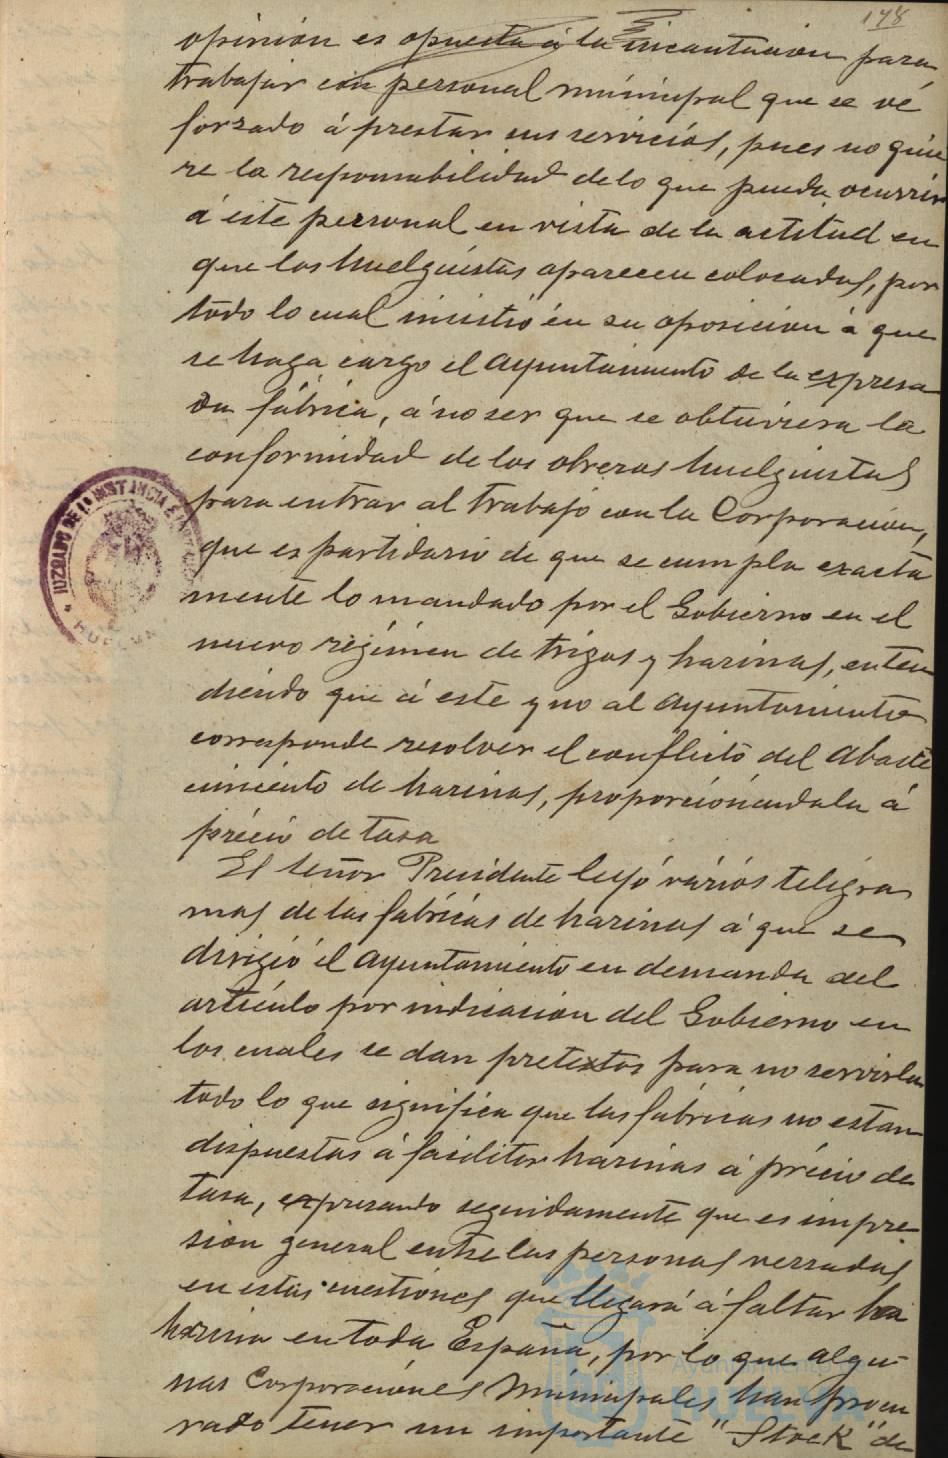 178
opinión es opuesta á la incautación para
trabajar con personal municipal que se vé
forzado á prestar sus servicios, pues no quie
re la responsabilidad de lo que pueda ocurrir
á este personal en vista de la actitud en
que los huelguistas aparecen colocados, por
todo lo cual insistió en su oposición á que
se haga cargo el Ayuntamiento de la expresa
da fábrica, á no ser que se obtuviera la
conformidad de los obreros huelguistas
para entrar al trabajo con la Corporación,
que es partidario de que se cumpla exacta
mente lo mandado por el Gobierno en el
nuevo régimen de trigos y harinas, enten
diendo que á este y no al Ayuntamiento
corresponde resolver el conflicto del abaste
cimiento de harinas, proporcionandola á
précio de tasa
El señor Presidente leyó varios telégra
mas de las fabricas de harinas á que se
dirigió el Ayuntamiento en demanda del
artículo por indicacion del Gobierno en
los cuales se dan pretextos para no servirla
todo lo que significa que las fabricas no estan
dispuestas á facilitar harinas á précio de
tasa, expresando seguidamente que es impre
sion general entre las personas versadas
en estas cuestiones que llegará á faltar la
harina en toda España, por lo que algu-
nas Corporaciones Municipales han procu
rado tener un importante "Stock" de
JUZGADO DE 1ª INSTANCIA E
HUELVA
Ayuntamiento de
HUELVA